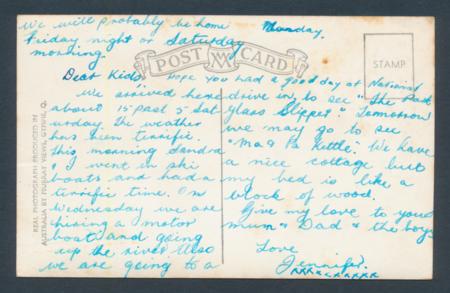 We will probably be home
Friday night or Saturday
morning.
Monday.
POST CARD
STAMP
Dear Kids,
We arrived here
about 15 past 5 Sat
urday the weather
has been terrific.
This morning Sandra
& I went in ski
boats and had a
terrific time. On
Wednesday we are
hiring a motor
boat and going
up the river. Also
we are going to a
Hope you had a good day at National
drive in to see "The
glass Slipper". Tomorrow
we may go to see
"Ma & Pa Kettle". We have
a nice cottage but
my bed is like a
block of wood.
Give my love to your
mum & Dad & the boys
Love
Jennifer.
xxxxxxxxxx
REAL PHOTOGRAPH PRODUCED IN
AUSTRALIA BY MURRAY VIEWS, GYMPIE, Q.